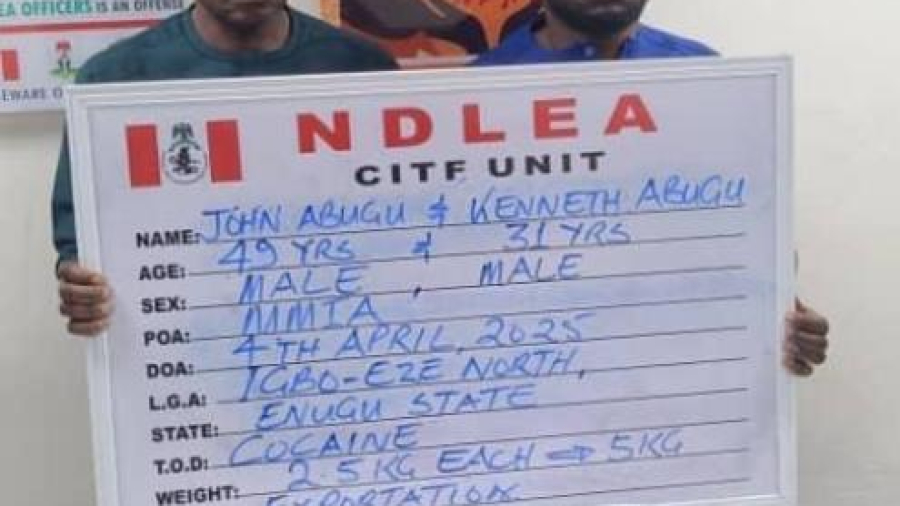 EA OFFICERS IS AN OFFENSE
EWARE O
NDLEA
CITF UNIT
NAME: JOHN ABUGU & KENNETH ABUGU
AGE: 49 YRS & 31 YRS
SEX: MALE, MALE
POA: MMIA
DOA: 4TH APRIL, 2025
L.G.A: IGBO-EZE NORTH,
STATE: ENUGU STATE
T.O.D: COCAINE
WEIGHT: 2.5KG EACH → 5KG
EXPORTATION